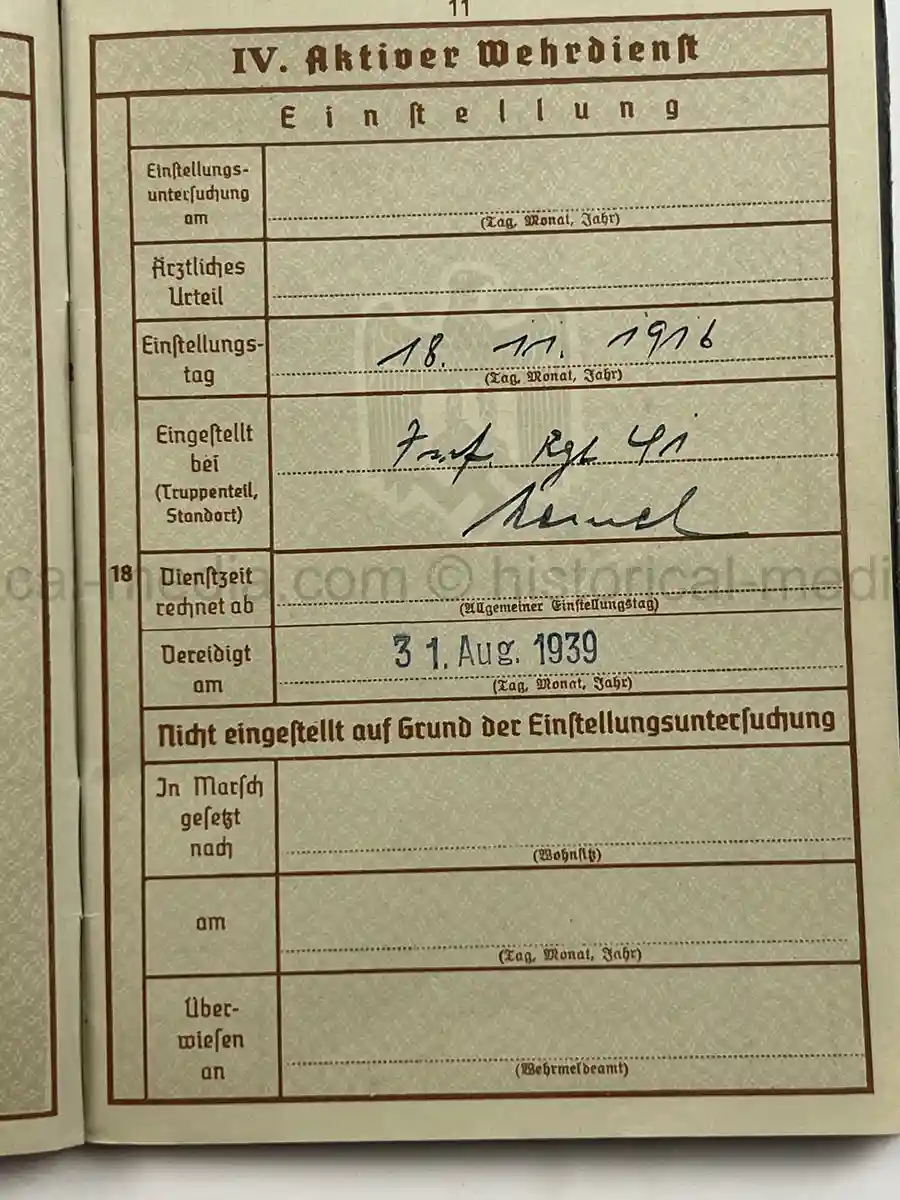 11
IV. Aktiver Wehrdienst
Einstellung
Einstellungs-
untersuchung
am
(Tag, Monat, Jahr)
Ärztliches
Urteil
Einstellungs-
tag
18. 11. 1916
(Tag, Monat, Jahr)
Eingestellt
bei
(Truppenteil,
Standort)
Inf. Rgt 41
Memel
18
Dienstzeit
rechnet ab
(Allgemeiner Einstellungstag)
cal-media.com © historical-medi
Vereidigt
am
31. Aug. 1939
(Tag, Monat, Jahr)
Nicht eingestellt auf Grund der Einstellungsuntersuchung
In Marsch
gesetzt
nach
(Wohnsitz)
am
(Tag, Monat, Jahr)
Über-
wiesen
an
(Wehrmeldeamt)